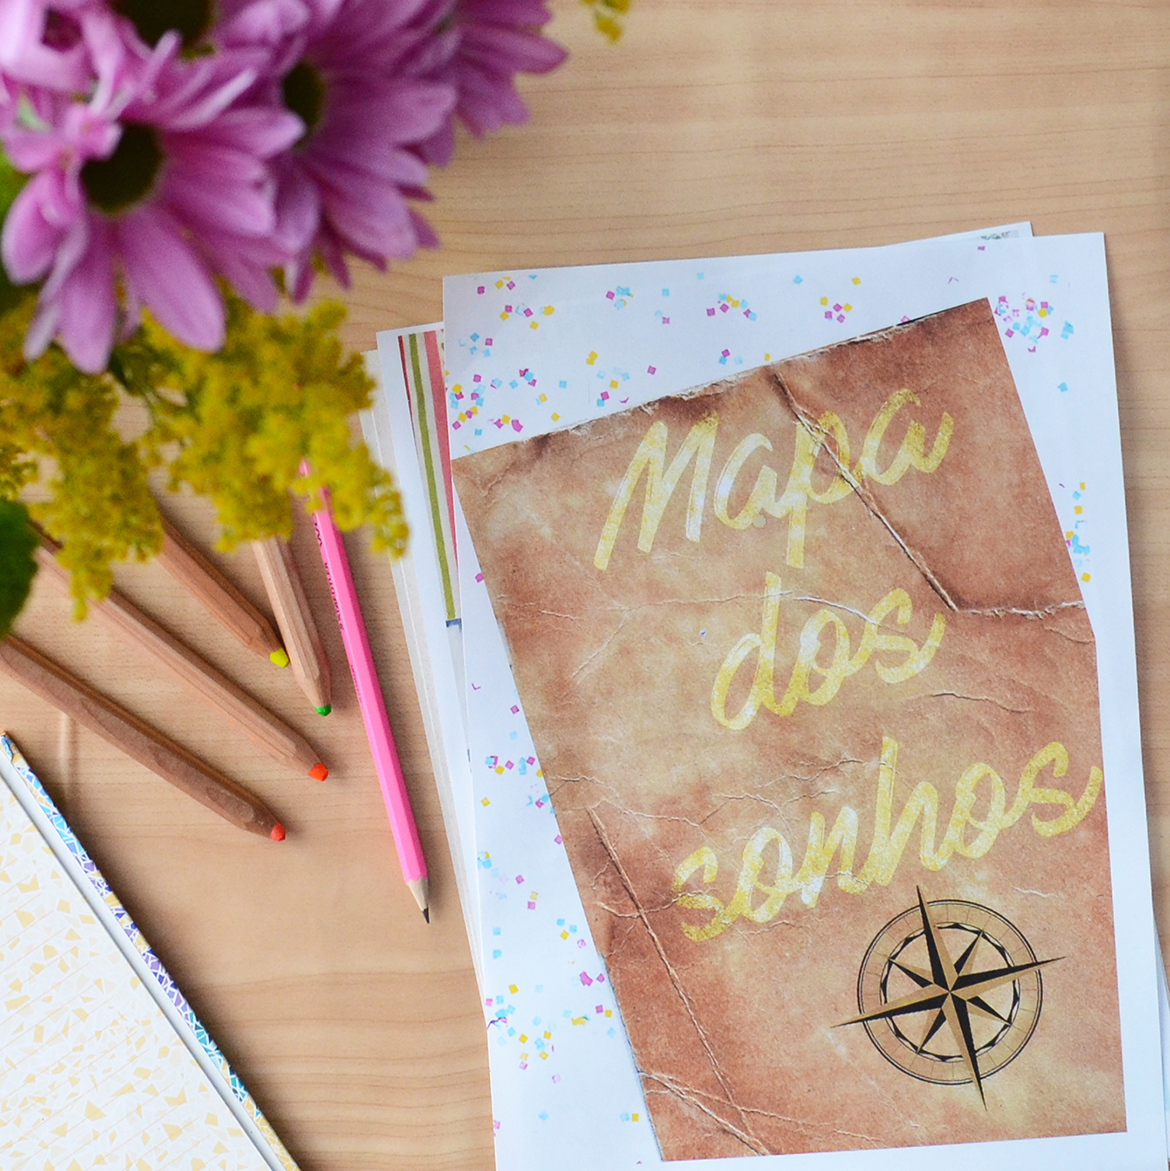 Mapa
dos
sonhos